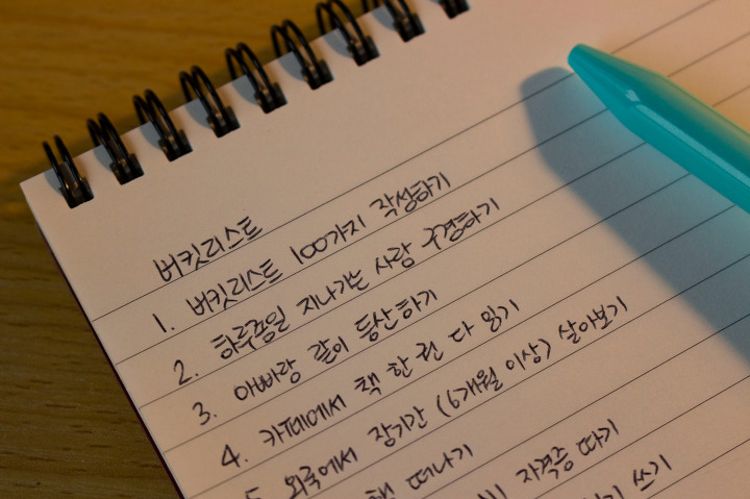 버킷리스트
1. 버킷리스트 100가지 작성하기
2. 하루종일 지나가는 사람 구경하기
3. 아빠랑 같이 등산하기
4. 카페에서 책 한 권 다 읽기
5. 외국에서 장기간 (6개월 이상) 살아보기
떠나기
자격증 따기
쓰기